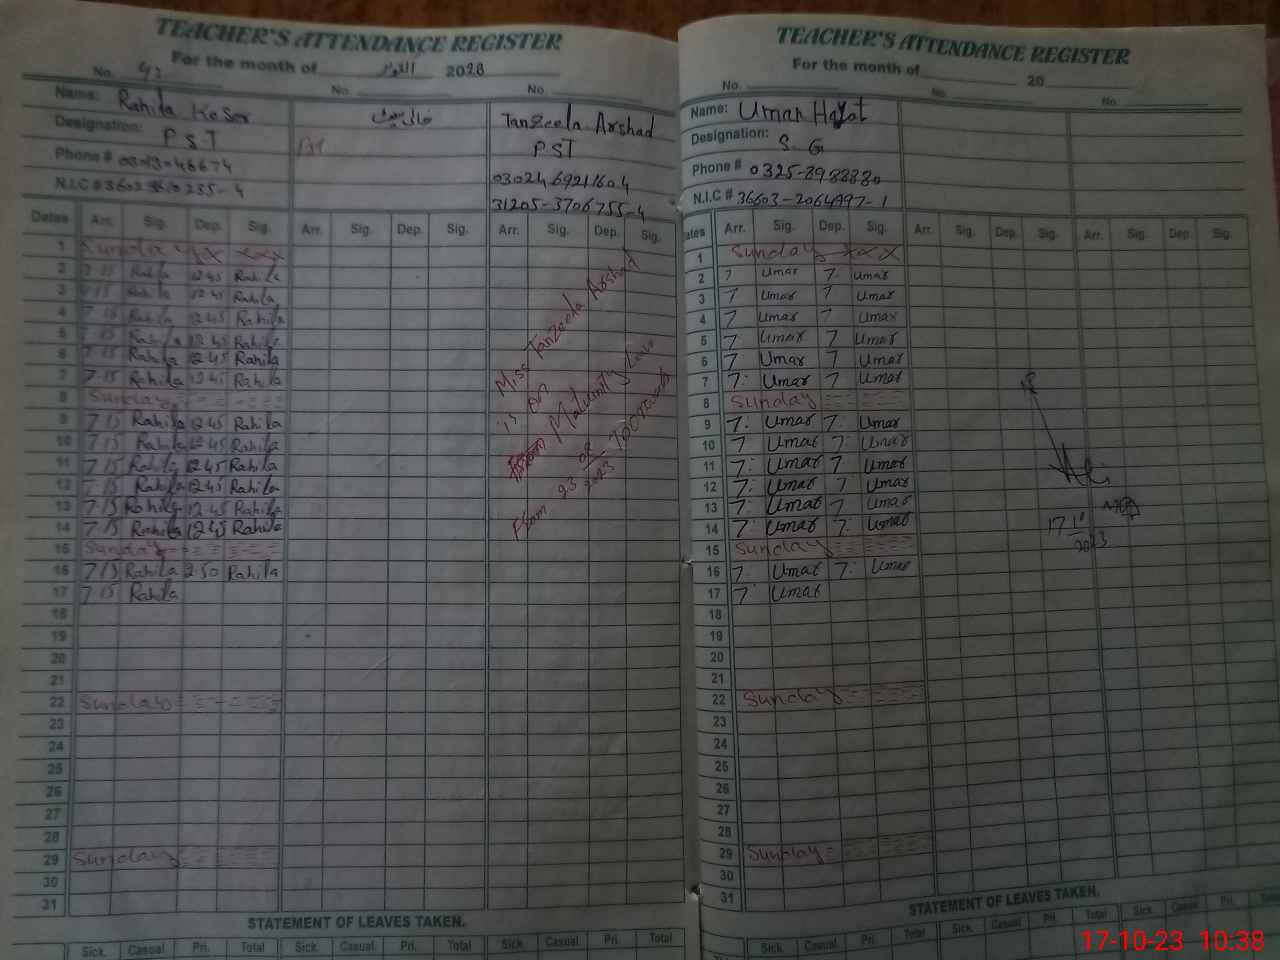 TEACHER'S ATTENDANCE REGISTER
For the month of اکتوبر 2023
No. No. No.
Name: Rahila Koser
Designation: P S T
Phone #
N.I.C #
خالی سیٹ
Tanzeela Arshad
PST
0302469211604
31205-3706755-4
Dates Arr. Sig. Dep. Sig. Arr. Sig. Dep. Sig. Arr. Sig. Dep. Sig.
1 Sunday xx xxx
2 7 15 Rahila 12 45 Rahila
3 7 15 Rahila 12 45 Rahila
4 7 15 Rahila 12 45 Rahila
5 7 15 Rahila 12 45 Rahila
6 7 15 Rahila 12 45 Rahila
7 7 15 Rahila 12 45 Rahila
8 Sunday
9 7 15 Rahila 12 45 Rahila
10 7 15 Rahila 12 45 Rahila
11 7 15 Rahila 12 45 Rahila
12 7 15 Rahila 12 45 Rahila
13 7 15 Rahila 12 45 Rahila
14 7 15 Rahila 12 45 Rahila
15 Sunday
16 7 15 Rahila 2 50 Rahila
17 7 15 Rahila
18
19
20
21
22 Sunday
23
24
25
26
27
28
29 Sunday
30
31
Miss Tanzeela Arshad
is on
Maternity Leave
From 2023
STATEMENT OF LEAVES TAKEN.
Sick. Casual Pri. Total Sick. Casual. Pri. Total Sick. Casual Pri. Total
TEACHER'S ATTENDANCE REGISTER
For the month of 20
No. No. No.
Name: Umar Hayat
Designation: S. G
Phone # 0325-8988880
N.I.C # 36603-2064997-1
Dates Arr. Sig. Dep. Sig. Arr. Sig. Dep. Sig. Arr. Sig. Dep. Sig.
1 Sunday xxx
2 7 Umar 7. Umar
3 7 Umar 7 Umar
4 7 Umar 7 Umar
5 7 Umar 7 Umar
6 7 Umar 7 Umar
7 7: Umar 7 Umar
8 Sunday
9 7: Umar 7: Umar
10 7 Umar 7: Umar
11 7: Umar 7 Umar
12 7: Umar 7 Umar
13 7: Umar 7 Umar
14 7: Umar 7: Umar
15 Sunday
16 7: Umar 7: Umar
17 7: Umar
18
19
20
21
22 Sunday
23
24
25
26
27
28
29 Sunday
30
31
2023
STATEMENT OF LEAVES TAKEN.
Sick. Casual. Pri. Total Sick. Casual Pri. Total Sick.
17-10-23 10:38